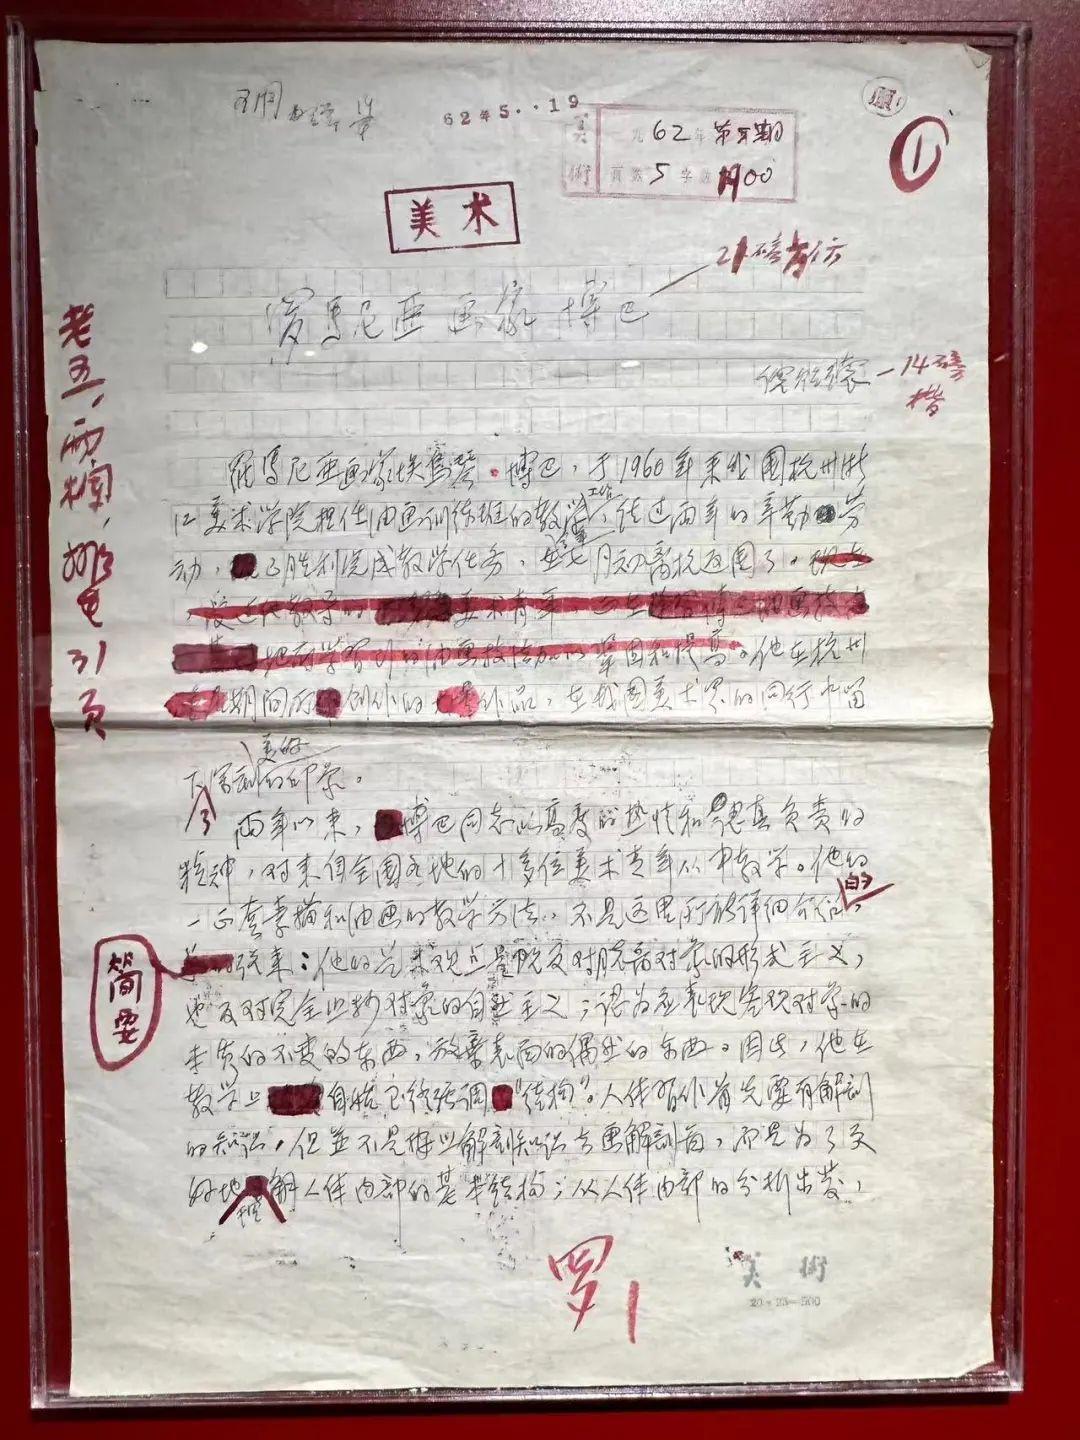 62年5..19
美术
一九62年第5期
页数5字数1900
①
美术
21磅
罗马尼亚画家博巴
14磅
楷
老五,两栏,排电31页
罗马尼亚画家埃乌琴·博巴,于1960年来我国杭州浙
江美术学院担任油画训练班的教学工作,经过两年的辛勤劳
动,已胜利完成教学任务,在七月初离杭返国了。现在
,受过他教导的美术青年,
他所学习的油画技法加以巩固和提高。他在杭州
期间所创作的作品,在我国美术界的同行中留
下了深刻美好的印象。
两年以来,博巴同志以高度的热情和认真负责的
精神,对来自全国各地的十多位美术青年从中教学。他的
一套素描和油画的教学方法,不是这里所能详细介绍的,
简要
说来:他的艺术观点是既反对脱离对象的形式主义,
也反对完全照抄对象的自然主义;认为应表现客观对象的
本质的不变的东西,放弃表面的偶然的东西。因此,他在
教学上自始至终强调“结构”。人体习作首先要有解剖
的知识,但并不是以解剖知识去画解剖图,而是为了更
好地理解人体内部的基本结构;从人体内部的分析出发,
罗1
美术
20×25=500